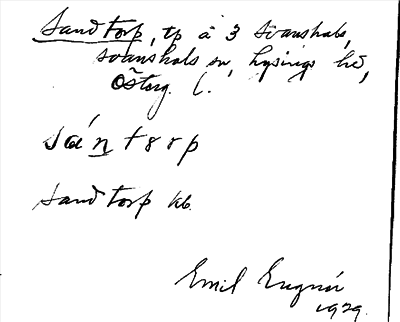 Sandtorp, tp å 3 Svanshals,
Svanshals sn, Lysings hd,
Österg. l.
sántorp
Sandtorp kb.
Emil
1929.